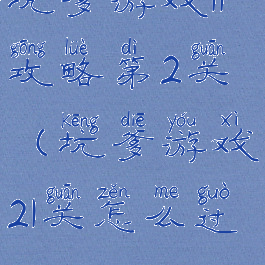 坑爹游戏11
gōng lüè dì guān
攻略第2关
kēng diē yóu xì
(坑爹游戏
guān zěn me guò
21关怎么过